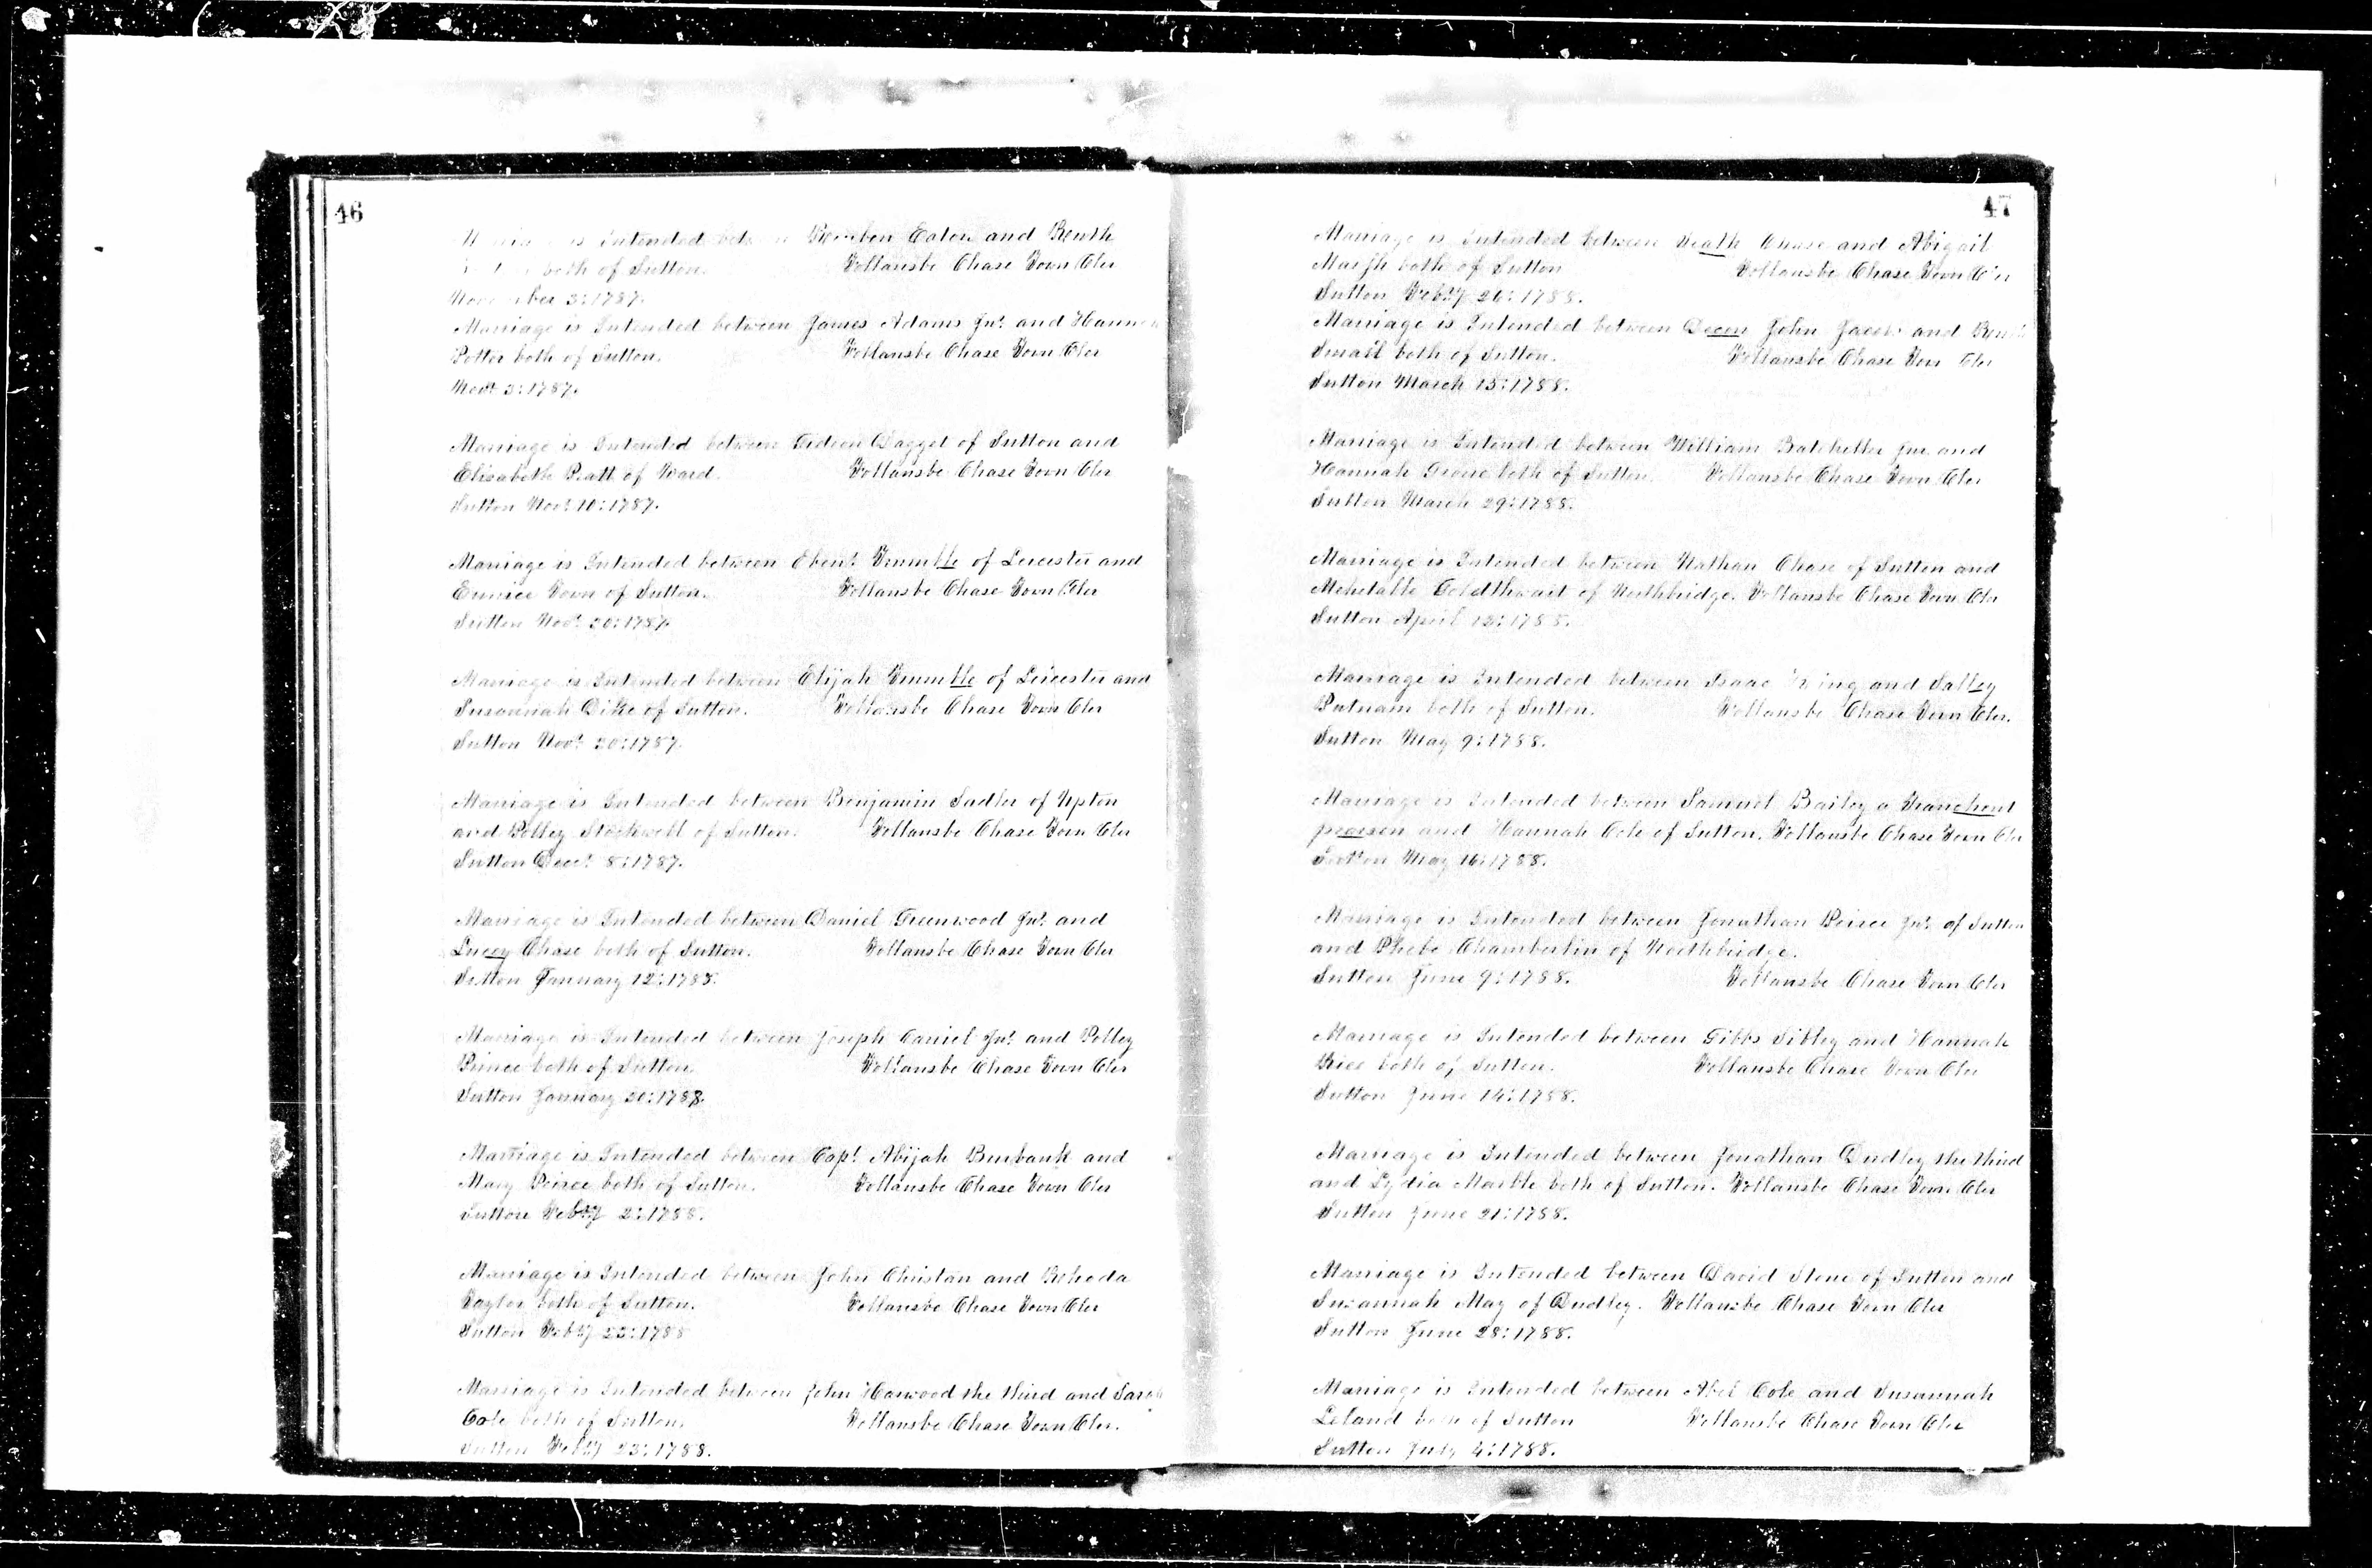 46
is Intended Reuben Eaton and Reuth
both of Sutton. Follansbe Chase Town Cler
3:1787.
Marriage is Intended between James Adams Jnr. and
Potter both of Sutton. Follansbe Chase Town Cler
Novr. 3:1787.
Marriage is Intended between Gideon Dagget of Sutton and
Elisabeth Pratt of Ward. Follansbe Chase Town Cler
Sutton Novr. 10:1787.
Marriage is Intended between Ebenr. of Leicester and
Eunice Town of Sutton. Follansbe Chase Town Cler
Sutton Novr. 20:1787.
Marriage is Intended between Elijah of Leicester and
Susannah Dike of Sutton. Follansbe Chase Town Cler
Sutton Novr. 20:1787.
Marriage is Intended between Benjamin Sadler of Upton
and Polley Stockwell of Sutton. Follansbe Chase Town Cler
Sutton Decr. 8:1787.
Marriage is Intended between Daniel Greenwood Jnr. and
Lucey Chase both of Sutton. Follansbe Chase Town Cler
Sutton January 12:1788.
Marriage is Intended between Joseph Carriel Jnr. and Polley
Prince both of Sutton. Follansbe Chase Town Cler
Sutton January 20:1788.
Marriage is Intended between Capt. Abijah Burbank and
Mary Peirce both of Sutton. Follansbe Chase Town Cler
Sutton Febry 2:1788.
Marriage is Intended between John Christan and Rehoda
Taylor both of Sutton. Follansbe Chase Town Cler
Sutton Febry 22:1788
Marriage is Intended between John Harwood the third and
Cole both of Sutton. Follansbe Chase Town Cler.
Sutton Febry 23:1788.
47
Marriage is Intended between Heath Chase and Abigail
Marsh both of Sutton Follansbe Chase Town
Sutton Febry 26:1788.
Marriage is Intended between Decon John Jacobs and
Small both of Sutton. Follansbe Chase Town Cler
Sutton March 15:1788.
Marriage is Intended between William Batcheller Jnr and
Hannah both of Sutton. Follansbe Chase Town Cler
Sutton March 29:1788.
Marriage is Intended between Nathan Chase of Sutton and
Mehetable Goldthwait of Northbridge. Follansbe Chase Town Cler
Sutton April 12:1788.
Marriage is Intended between Isaac King and Salley
Putnam both of Sutton. Follansbe Chase Town Cler.
Sutton May 9:1788.
Marriage is Intended between Samuel Bailey a Tranchent
pearson and Hannah Cole of Sutton. Follansbe Chase Town Cler
Sutton May 16:1788.
Marriage is Intended between Jonathan Peirce Jnr. of Sutton
and Phebe Chamberlin of Northbridge.
Sutton June 9:1788. Follansbe Chase Town Cler
Marriage is Intended between Gibbs Sibley and Hannah
Rice both of Sutton. Follansbe Chase Town Cler
Sutton June 14:1788.
Marriage is Intended between Jonathan Dudley the third
and Lydia Marble both of Sutton. Follansbe Chase Town Cler
Sutton June 21:1788.
Marriage is Intended between David Stone of Sutton and
Susannah May of Dudley. Follansbe Chase Town Cler
Sutton June 28:1788.
Marriage is Intended between Abel Cole and Susannah
Leland both of Sutton Follansbe Chase Town Cler
Sutton July 4:1788.